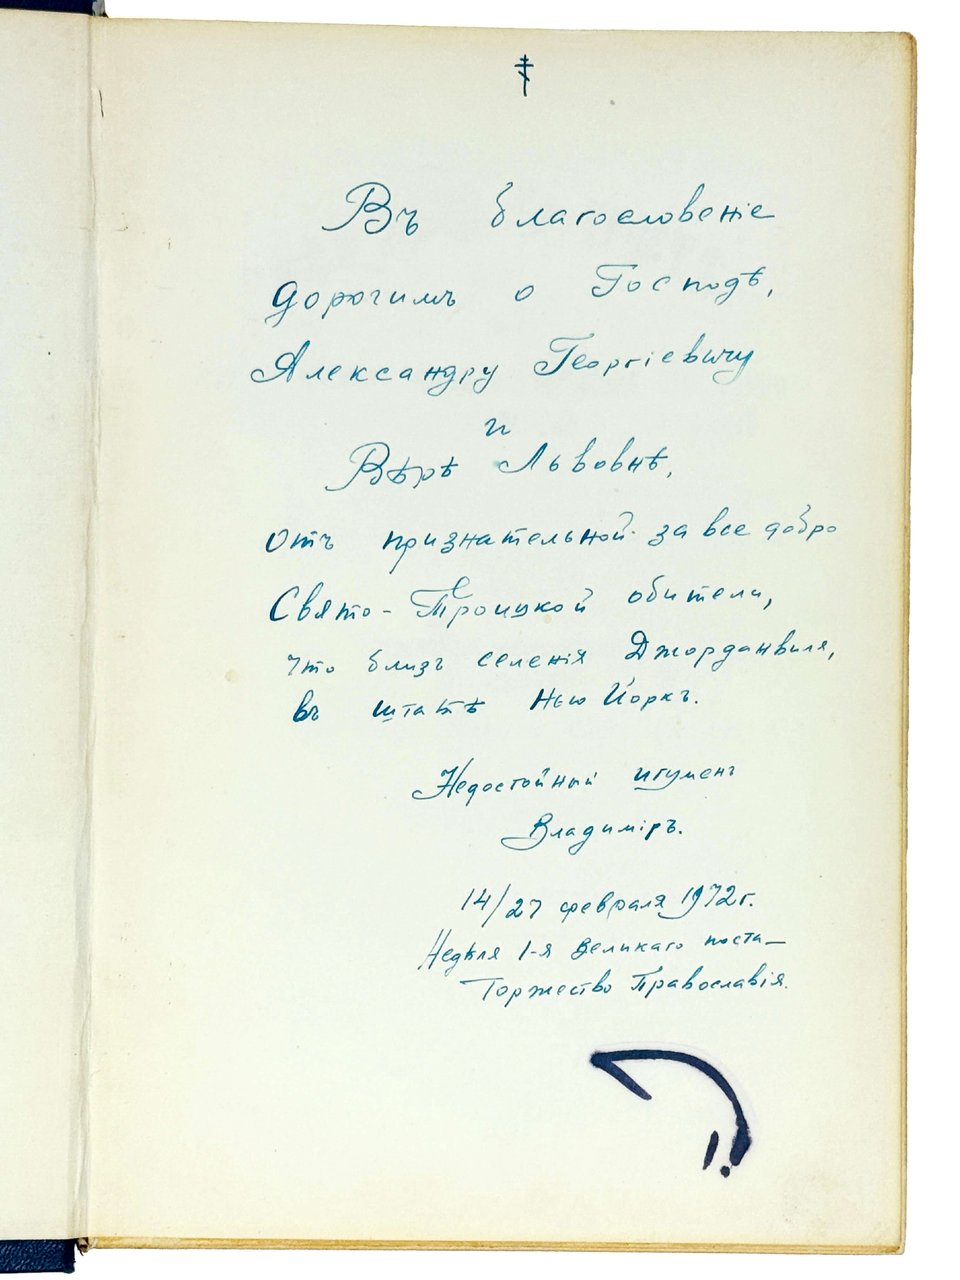 Въ благословеніе
дорогимъ о Господѣ,
Александру Георгіевичу
и
Вѣрѣ Львовнѣ,
отъ признательной за все добро
Свято-Троицкой обители,
что близъ селенія Джорданвиля,
въ штатѣ Нью Йоркъ.
Недостойный игуменъ
Владиміръ.
14/27 февраля 1972г.
Недѣля 1-я Великаго поста—
Торжество Православія.